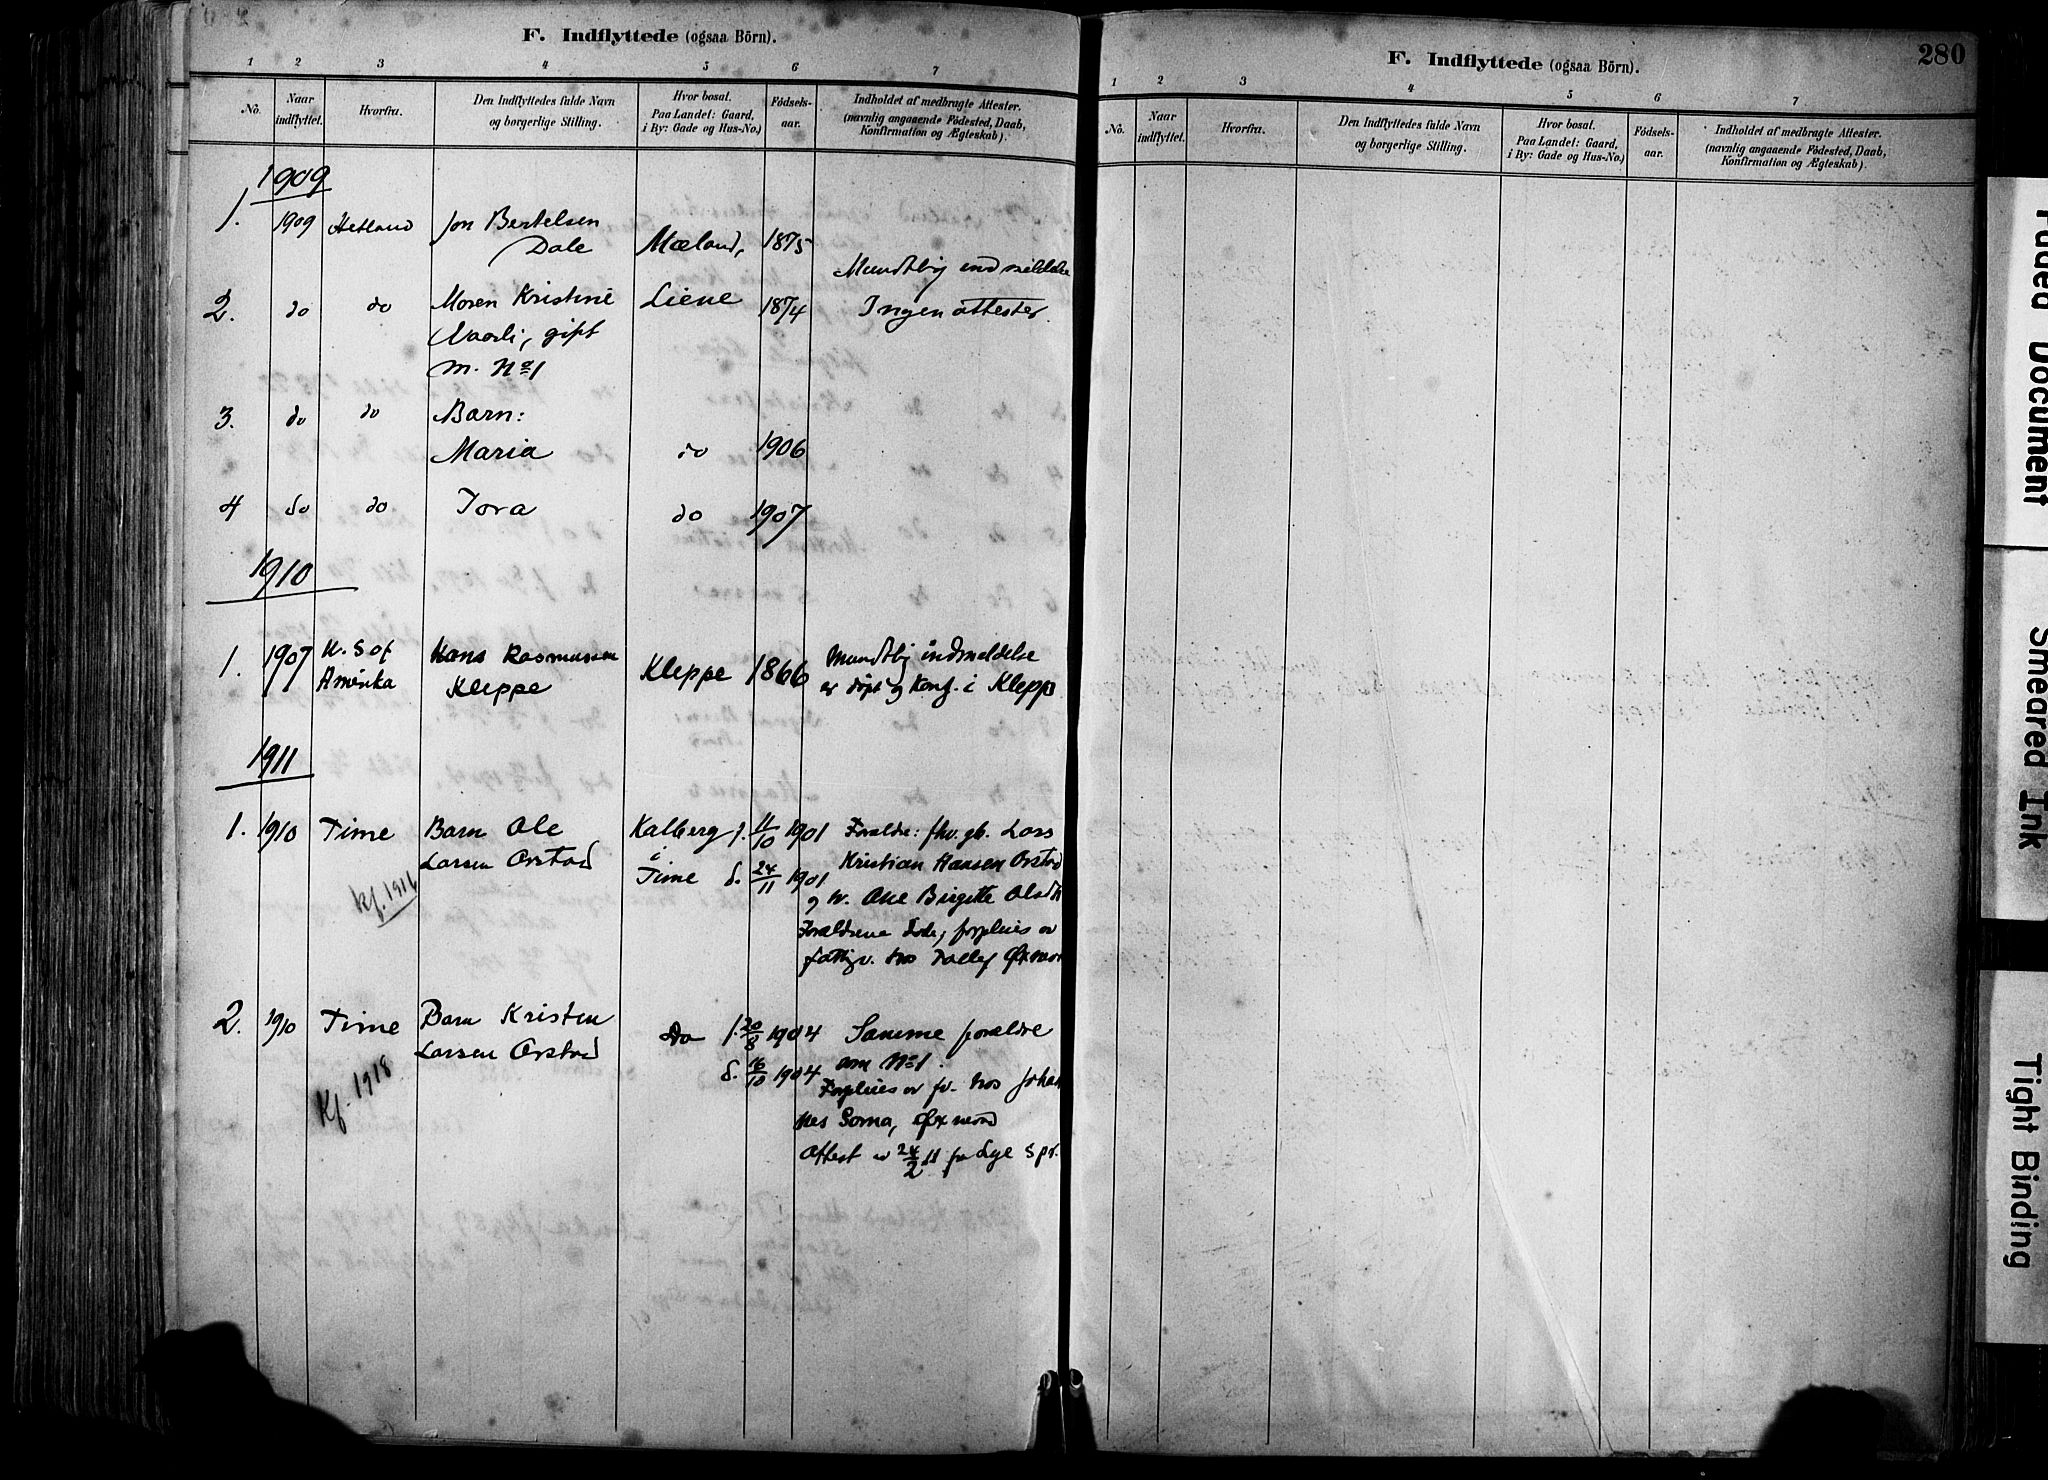 F. Indflyttede (ogsaa Börn).
1 2 3 4 5 6 7
No. Naar indflyttet. Hvorfra. Den Indflyttedes fulde Navn og borgerlige Stilling. Hvor bosat. Paa Landet: Gaard, i By: Gade og Hus-No.) Fødsels-aar. Indholdet af medbragte Attester. (navnlig angaaende Fødested, Daab, Konfirmation og Ægteskab).
1909
1. 1909 Hetland Jon Bertelsen
Dale Mæland, 1875
Mundtlig indmeldelse
2. do do Moren Kristine Liene 1874 Ingen attester.
gift
m. No 1
3. do do Barn:
Maria do 1906
4 do do Tora do 1907
1910
1. 1907 N. S of Hans Rasmussen Kleppe 1866 Mundtlig indmeldelse
Amerika Kleppe er døpt og konf. i Klepp
1911
1. 1910 Time Barn Ole Kalberg f. 11/10 1901 Forældre: fhv. gb. Lars
Larsen Orstad i Kristian Hansen Orstad
Time d. 24/11 1901
kf. 1916 og h. Ane Birgitte Olsdtr
Forældrene døde, forpleies av
fattigv. hos Tollef Øxnevad
2. 1910 Time Barn Kristen Do f. 20/8 1904 Samme forældre
Larsen Orstad som No 1.
d. 16/10 1904
Kf. 1918 Forpleies av fv. hos Johan
nes Soma, Øxnevad
Attest av 24/2 11 fra Lye Spr.
F. Indflyttede (ogsaa Börn).
280
1 2 3 4 5 6 7
No. Naar indflyttet. Hvorfra. Den Indflyttedes fulde Navn og borgerlige Stilling. Hvor bosat. Paa Landet: Gaard, i By: Gade og Hus-No.) Fødsels-aar. Indholdet af medbragte Attester. (navnlig angaaende Fødested, Daab, Konfirmation og Ægteskab).
Faded Document
Smeared Ink
Tight Binding